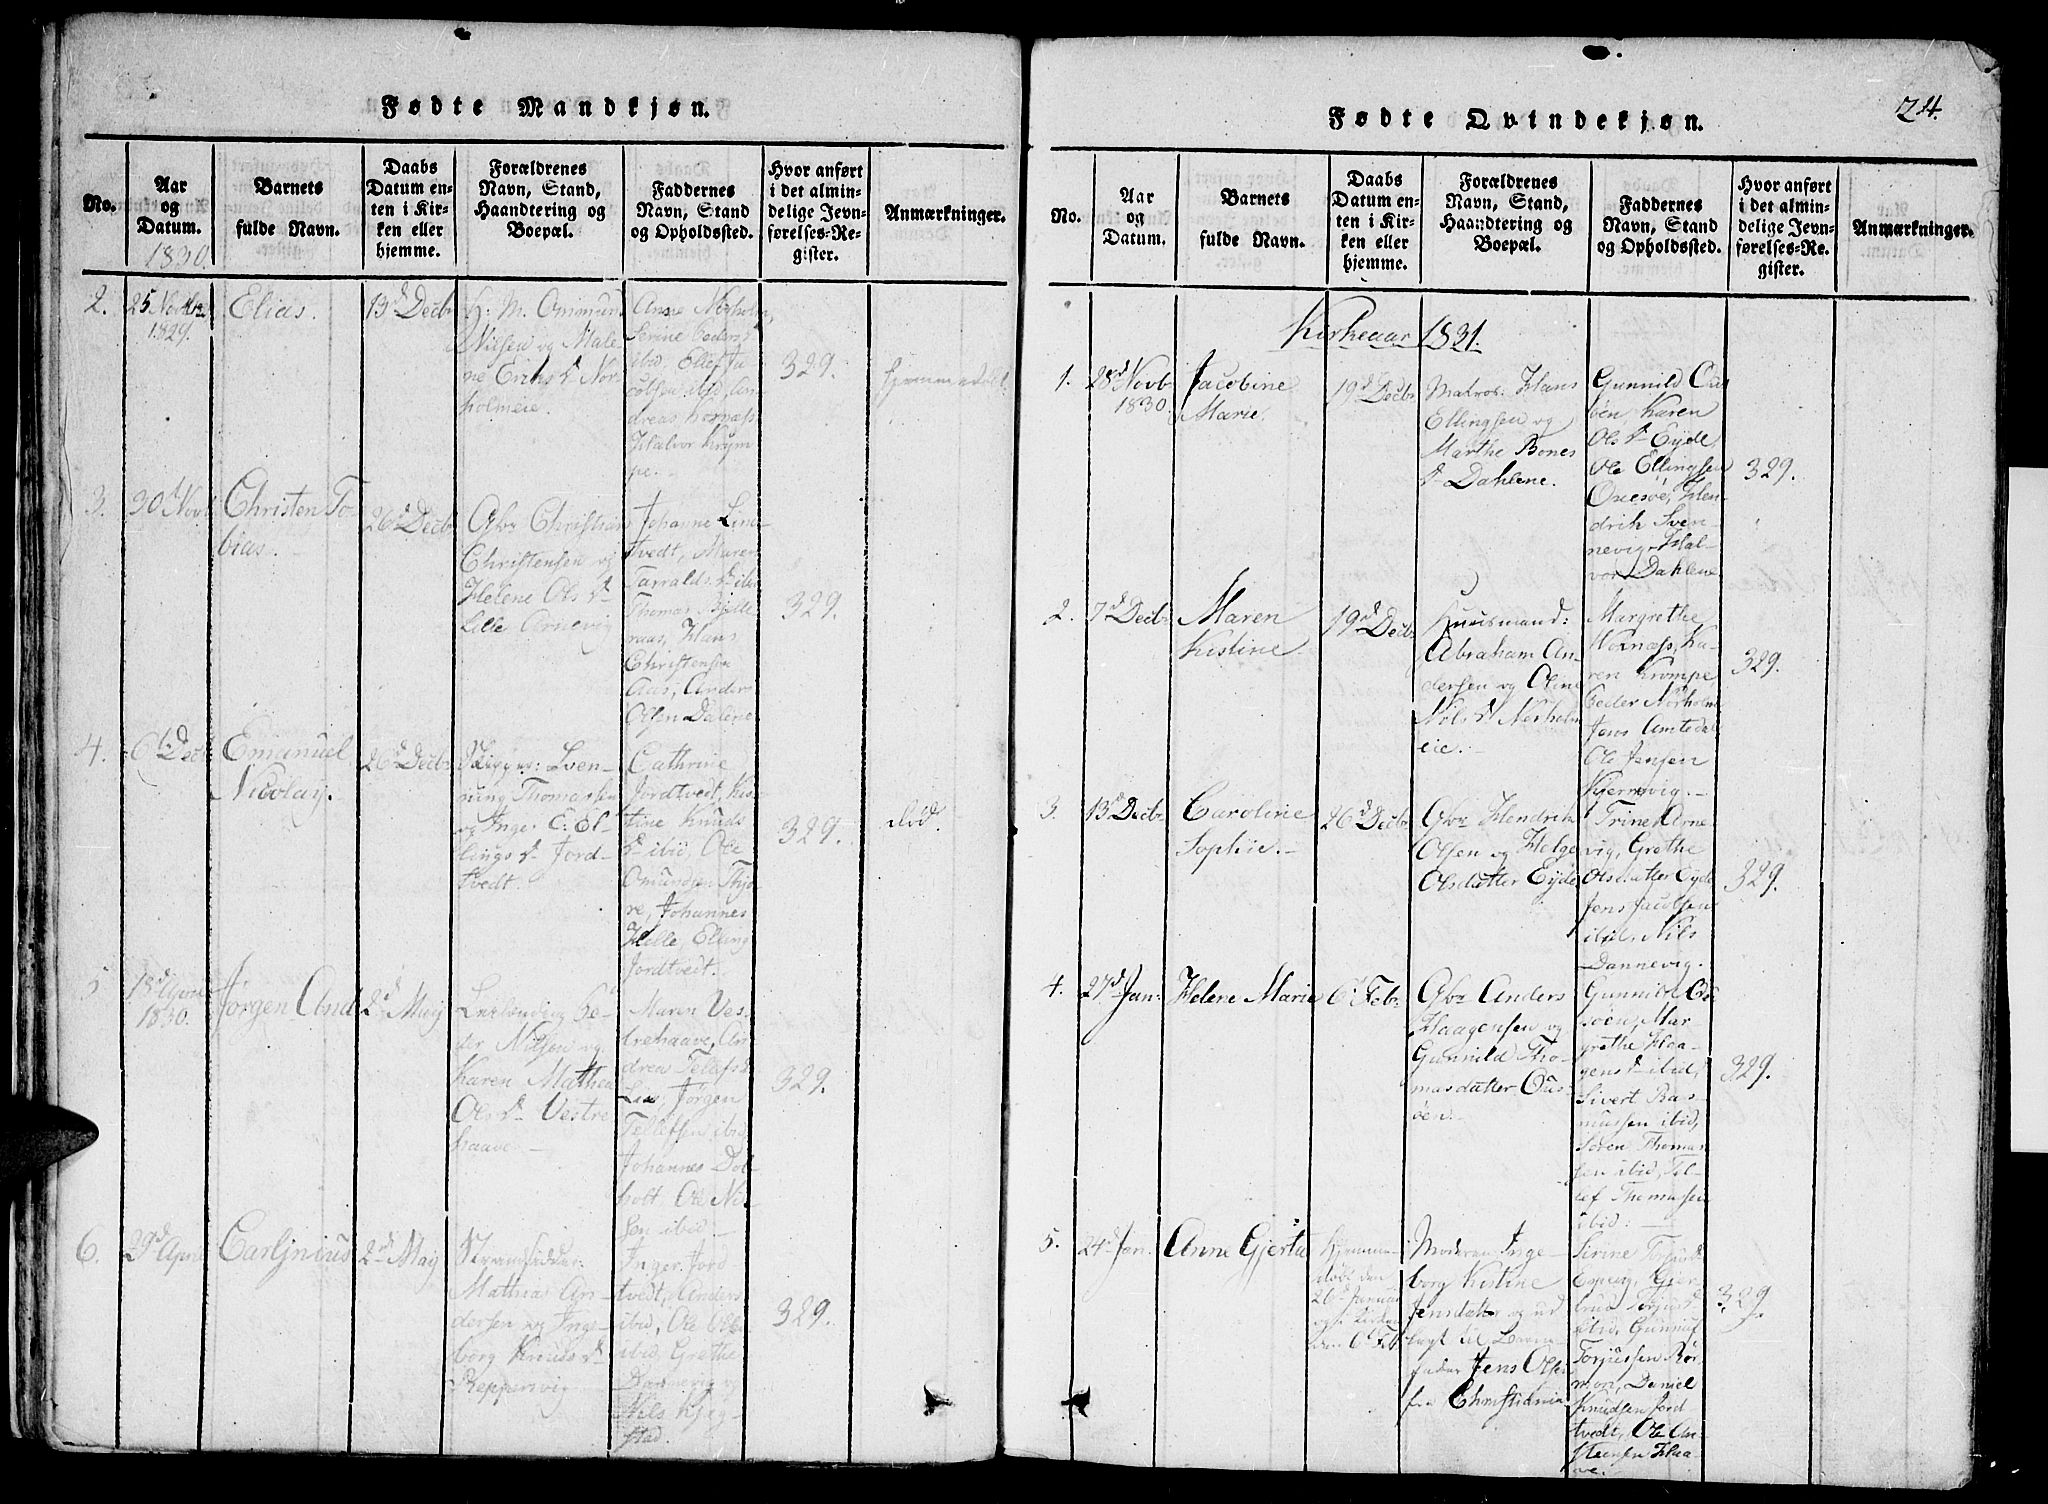 Fødte Mandkjøn.
No.
Aar
og
Datum.
1830.
Barnets
fulde Navn.
Daabs
Datum en-
ten i Kir-
ken eller
hjemme.
Forældrenes
Navn, Stand,
Haandtering og
Boepæl.
Faddernes
Navn, Stand
og Opholdssted.
Hvor anført
i det almin-
delige Jevn-
førelses-Re-
gister.
Anmærkninger.
2.
25 Novbr
1829.
Elias.
13d Decbr
H: M. Ommund
Nilsen og Male-
ne Eriks Dr Nor-
holmeie.
Anne Norholm,
Serine Peders Dr
ibid, Ellef Ja-
cobsen ibid, An-
dreas Hornæss,
Halvor Krym-
pe.
329.
hjemmedøbt
3.
30d Novb
Christen To-
bias.
26d Decbr
Gbr Christian
Christensen og
Helene Ols Dr
Lille Arnevig
Johanne Lind-
tvedt, Maren
Tarralds Dr ibid
Thomas Bjelle-
raas, Hans
Christensen
Aas, Anders
Olsen Dalene
329.
4.
6t Decb
Emanuel
Nicolay.
26d Decbr
Rigger: Sven-
ning Thomassen
og Inge. C: El-
lings Dr Jord-
tvedt.
Cathrine
Jordtvedt, Kis-
tine Knuds
Dr ibid, Ole
Omundsen Thjo-
re, Johannes
Helle, Elling
Jordtvedt.
329.
død.
5
18d April
1830.
Jørgen And
2d Maj
Peder Nilsen og
Karen Mathea
Ols Dr Vestre
haave
Maren Ves-
trehaave, An-
drea Telefs Dr
Lia, Jørgen
Tellefsen ibid
Johannes Dol-
holt, Ole Nil-
sen ibid:
329.
6.
29d April
Carljnius
2d Maj
Strandsidder:
Mathias An-
dersen og Inge-
borg Knuds Dr
Reppersvig
Inger Jord-
tvedt, Anders
ibid, Ole
ibid, Grethe
Dannevig og
Nils Kjeg-
stad.
329.
Fødte Qvindekjøn.
24.
No.
Aar
og
Datum.
Barnets
fulde Navn.
Daabs
Datum en-
ten i Kir-
ken eller
hjemme.
Forældrenes
Navn, Stand,
Haandtering og
Boepæl.
Faddernes
Navn, Stand
og Opholdssted.
Hvor anført
i det almin-
delige Jevn-
førelses-Re-
gister.
Anmærkninger.
Kirkeaar 1831.
1.
28d Novb
1830.
Jacobine
Marie.
19d Decbr
Matros: Hans
Ellingsen og
Marthe Bones
Dr Dahlene.
Gunnild Ous-
öen Karen
Ols Dr Eyde
Ole Ellingsen
Ousöe, Hen-
drik Sven-
nevig, Hal-
vor Dahlene
329.
2.
7d Decbr
Maren
Kistine
19d Decbr
Huusmand:
Abraham An-
dersen og Oline
Nils Dr Norholm
eie.
Margrethe
Hornæss, Ka-
ren Krompe
Peder Norholm
Jens Amtedal
Ole Jensen
Kjernevig.
329.
3.
13d Decbr
Caroline
Sophie.
26d Decbr
Gbr Hendrik
Olsen og Helge
Olsdatter Eyde
Trine Arne-
vig, Grethe
Olsdatter Eyde
Jens Jacobsen
ibid, Nils
Dannevig.
329.
4.
27d Jan:
Helene Marie
6t Febr
Gbr Anders
Haagensen og
Gunnild Tho-
masdatter Ous-
öen.
Gunnild Ou-
söen, Mar-
grethe Haa-
gens Dr ibid,
Sivert Ras-
mussen ibid,
Søren Thomas-
sen ibid, Tel-
lef Thomassen
ibid:
329.
5.
24d Jan.
Anne Gjerta
Hjemme-
døbt den
26d Januar
og i Kirken
den 6t Feb
Moderen Inge-
borg Kistine
Jensdatr og ud-
lagt til Barne-
fader Jens Olsen
fra Christiania
Sirine Torjus Dr
Espevig, Gjer-
trud Torjus Dr
ibid, Gunnuf
Torjussen Rør-
mon, Daniel
Knudsen Jord
tvedt, Ole An-
stensen Haa-
ve.
329.